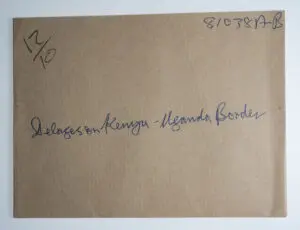 81038A-B
12/10
Delages on Kenya-Uganda Border